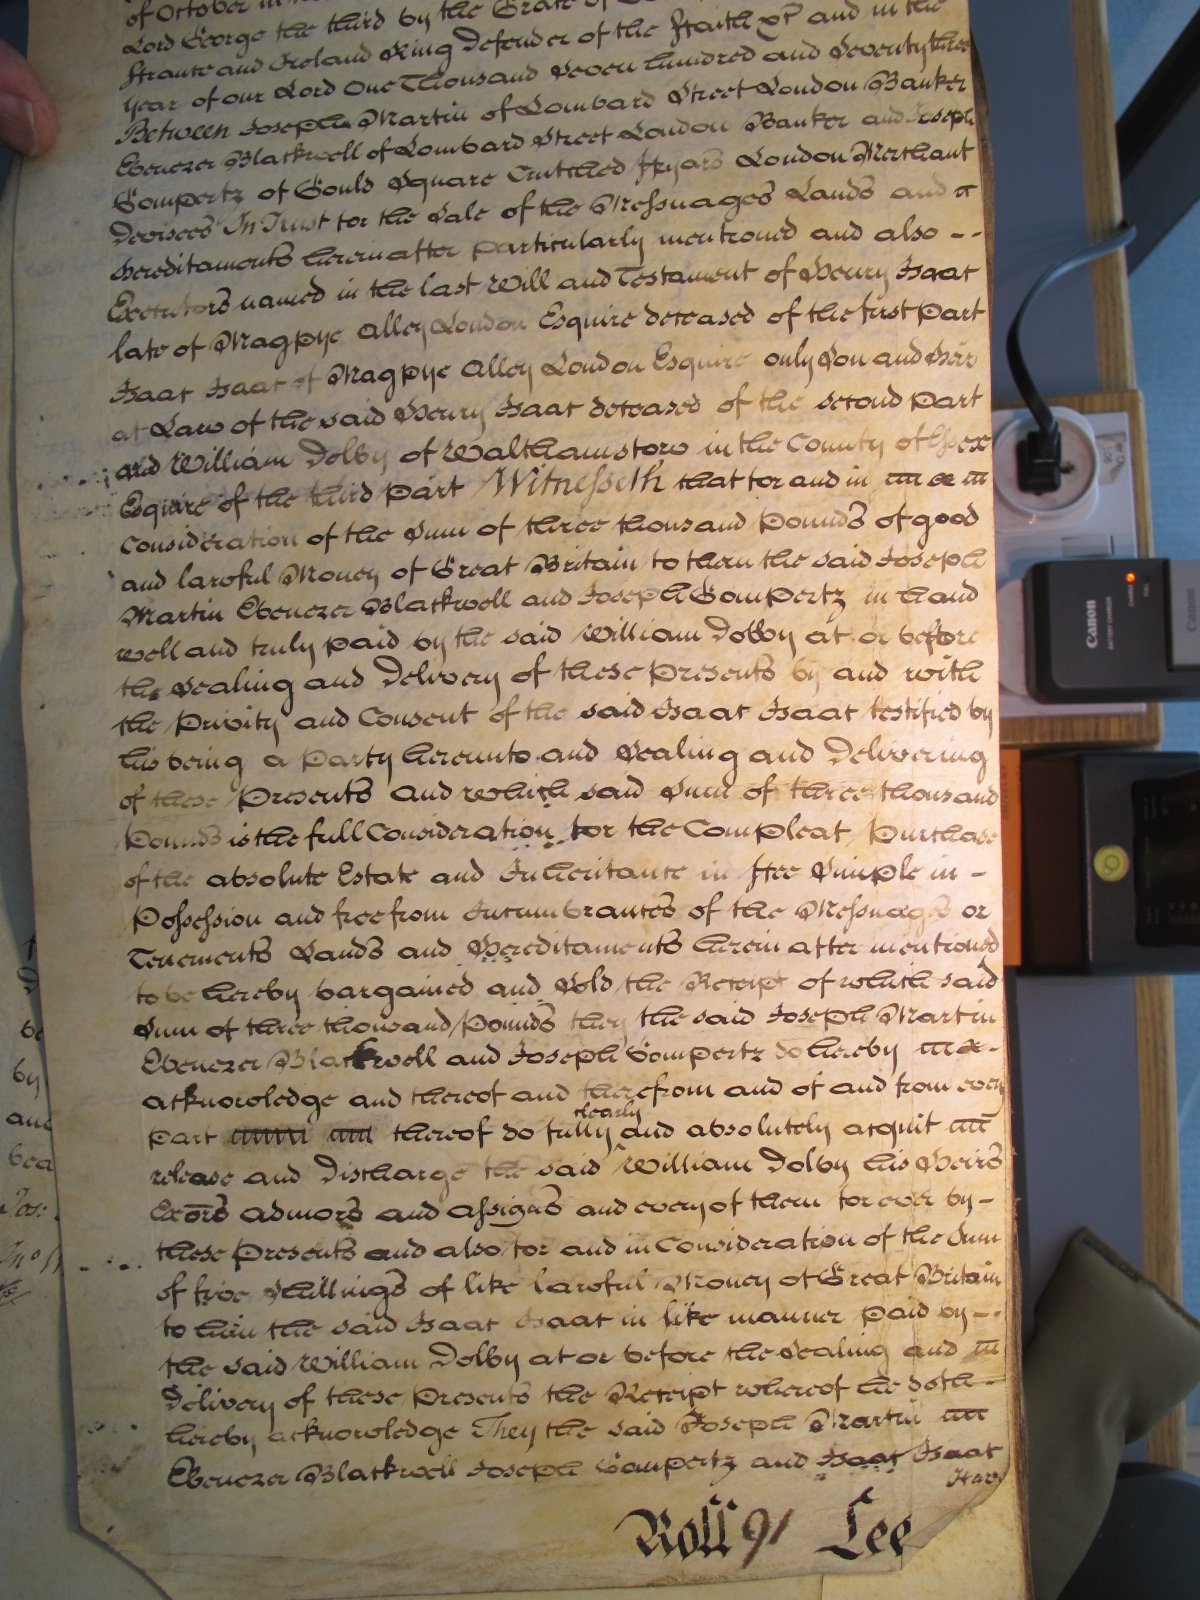 of October in
Lord George the third by the Grace of
ffrance and Ireland King Defender of the ffaith &c and in the
year of our Lord One Thousand Seven hundred and Seventy three
Between Joseph Martin of Lombard Street London Banker
Ebenezer Blackwell of Lombard Street London Banker and Joseph
Gompertz of Gould Square Crutched ffryars London Merchant
Devisees In Trust for the Sale of the Messuages Lands and
hereditaments herein after particularly mentioned and also - -
Executors named in the last Will and Testament of Henry Isaac
late of Magpye Alley London Esquire deceased of the first Part
Isaac Isaac of Magpye Alley London Esquire only Son and Heir
at Law of the said Henry Isaac deceased of the second Part
and William Dolby of Walthamstow in the County of Essex
Esquire of the third Part Witnesseth that for and in
Consideration of the Sum of three thousand Pounds of good
and lawful Money of Great Britain to them the said Joseph
Martin Ebenezer Blackwell and Joseph Gompertz in hand
well and truly paid by the said William Dolby at or before
the Sealing and Delivery of these Presents by and with
the Privity and Consent of the said Isaac Isaac testified by
his being a Party hereunto and Sealing and Delivering
of these Presents and which said Sum of three thousand
Pounds is the full Consideration for the Compleat Purchase
of the absolute Estate and Inheritance in ffee Simple in -
Possession and free from Incumbrances of the Messuages or
Tenements Lands and Hereditaments herein after mentioned
to be hereby bargained and Sold the Receipt of which said
Sum of three thousand Pounds they the said Joseph Martin
Ebenezer Blackwell and Joseph Gompertz do hereby
acknowledge and thereof and therefrom and of and from every
part thereof do fully clearly and absolutely acquit
release and Discharge the said William Dolby his Heirs
Exors admors and assigns and every of them for ever by -
these Presents and also for and in Consideration of the Sum
of five Shillings of like lawful Money of Great Britain
to him the said Isaac Isaac in like manner paid by -
the said William Dolby at or before the Sealing and
Delivery of these Presents the Receipt whereof he doth
hereby acknowledge They the said Joseph Martin
Ebenezer Blackwell Joseph Gompertz and Isaac Isaac
Have
Roll 91 Lee
Canon
CHARGE